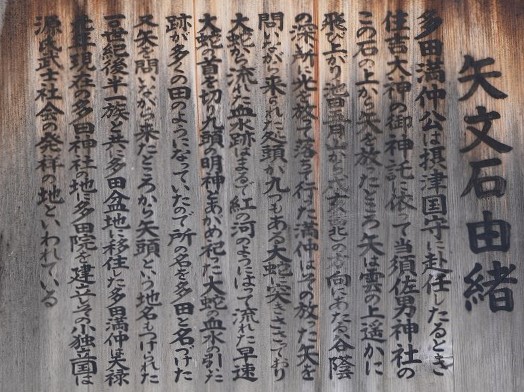 矢文石由緒
多田満仲公は摂津国守に赴任したるとき
住吉大神の御神託に依って当須佐男神社の
この石の上から矢を放ったところ矢は雲の上遥かに
飛び上がり池田五月山から北のかた向にあたる谷陰
の深い所へ光を放て落ちて行た満仲はその放った矢を
問いながら来られた処頭が九つもある大蛇に突きささっており
大蛇から流れた血水跡はまるで紅の河のようになって流れた早速
大蛇の首を切り九頭明神とあがめ祀った大蛇の血水の引た
跡が多くの田のようになっていたので所の名を多田と名づけた
又矢を問いながら来たところから矢頭という地名もつけられた
十世紀後半一族と共に多田盆地に移住した多田満仲は天禄
元年現在の多田神社の地に多田院を建立しその小独立国は
源氏武士社会の発祥の地といわれている